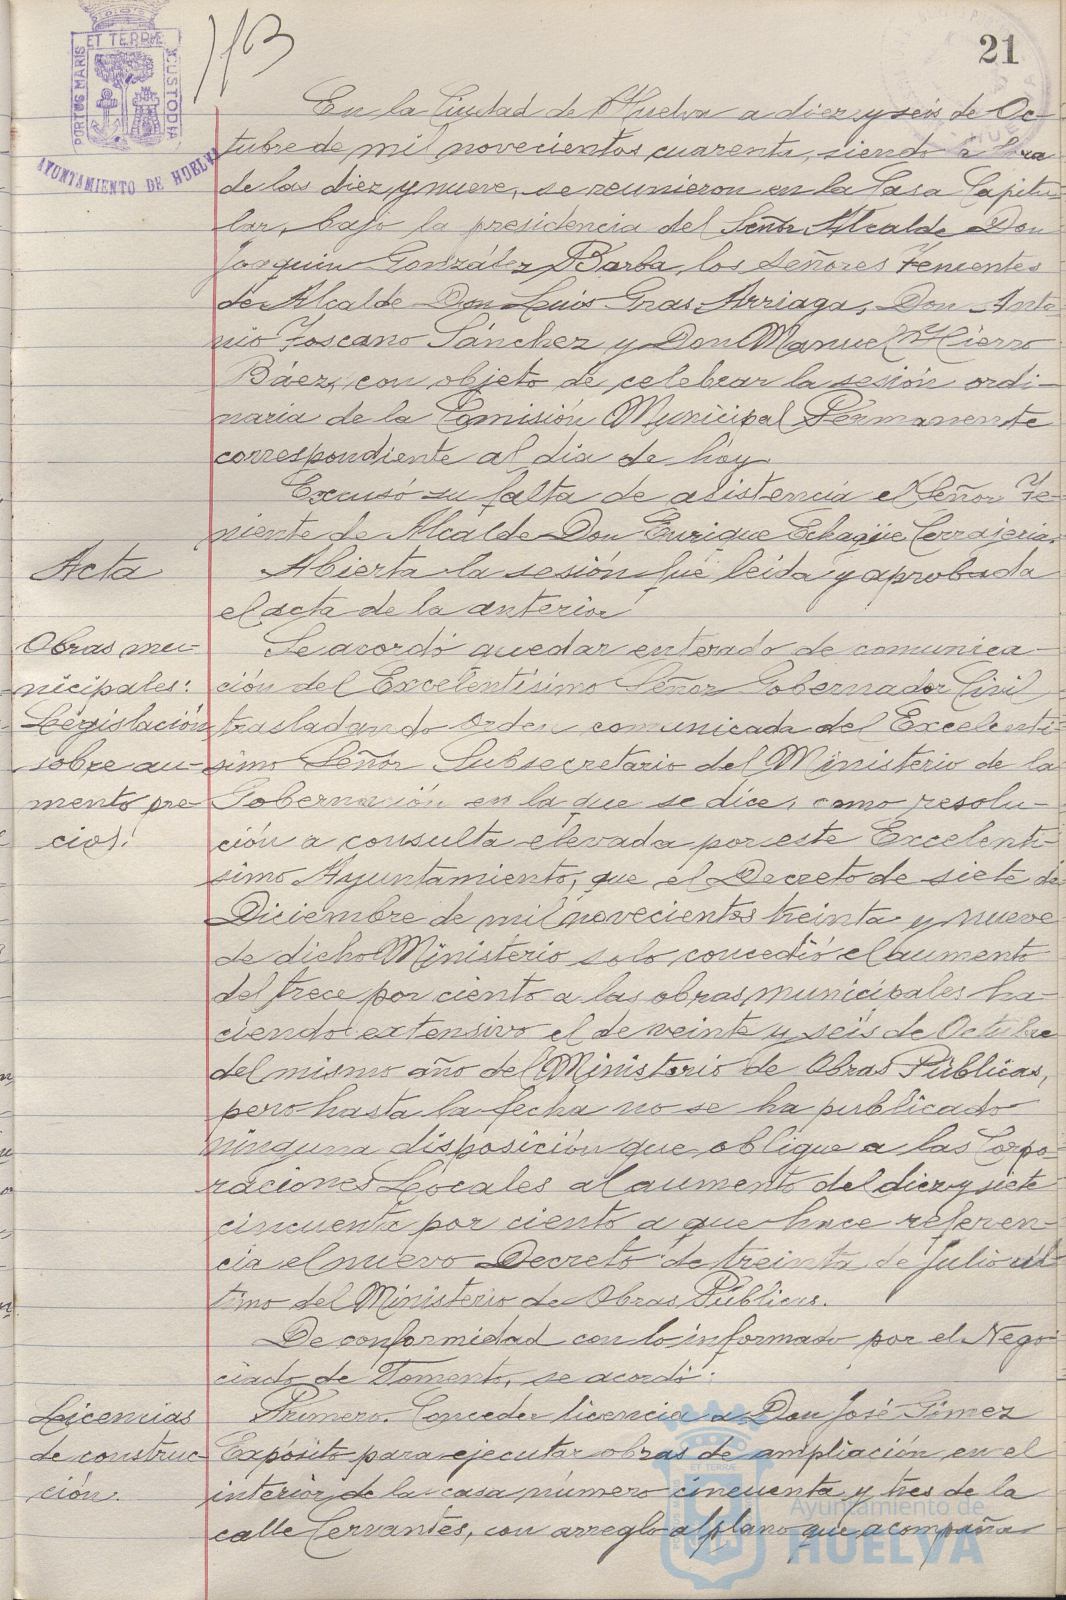 ET TERRÆ
PORTUS MARIS
CUSTODIA
AYUNTAMIENTO DE HUELVA
21
En la Ciudad de Huelva a diez y seis de Oc-
tubre de mil novecientos cuarenta, siendo la hora
de las diez y nueve, se reunieron en la Casa Capitu-
lar, bajo la presidencia del Señor Alcalde Don
Joaquin González Barba, los Señores Tenientes
de Alcalde Don Luis Gras Arriaga, Don Anto
nio Toscano Sánchez y Don Manuel Hierro
Báez, con objeto de celebrar la sesión ordi-
naria de la Comisión Municipal Permanente
correspondiente al dia de hoy.
Excusó su falta de asistencia el Señor Te-
niente de Alcalde Don Enrique Echagüe Cerrajeria.
Acta
Abierta la sesión fué leida y aprobada
el acta de la anterior
Obras mu-
nicipales:
Legislación
sobre au-
mento pre-
cios.
Se acordó quedar enterado de comunica-
ción del Excelentísimo Señor Gobernador Civil
trasladando orden comunicada del Excelenti-
simo Señor Subsecretario del Ministerio de la
Gobernación en la que se dice, como resolu-
ción a consulta elevada por este Excelenti-
simo Ayuntamiento, que el Decreto de siete de
Diciembre de mil novecientos treinta y nueve
de dicho Ministerio solo concedió el aumento
del trece por ciento a las obras municipales ha-
ciendo extensivo el de veinte y seis de Octubre
del mismo año del Ministerio de Obras Públicas,
pero hasta la fecha no se ha publicado
ninguna disposición que obligue a las Corpo-
raciones Locales al aumento del diez y siete
cincuenta por ciento a que hace referen-
cia el nuevo Decreto de treinta de Julio úl-
timo del Ministerio de Obras Públicas.
De conformidad con lo informado por el Nego-
ciado de Fomento, se acordó:
Licencias
de construc-
ción.
Primero. Conceder licencia a Don José Gómez
Expósito para ejecutar obras de ampliación en el
interior de la casa número cincuenta y tres de la
calle Cervantes, con arreglo al plano que acompaña
Ayuntamiento de
HUELVA